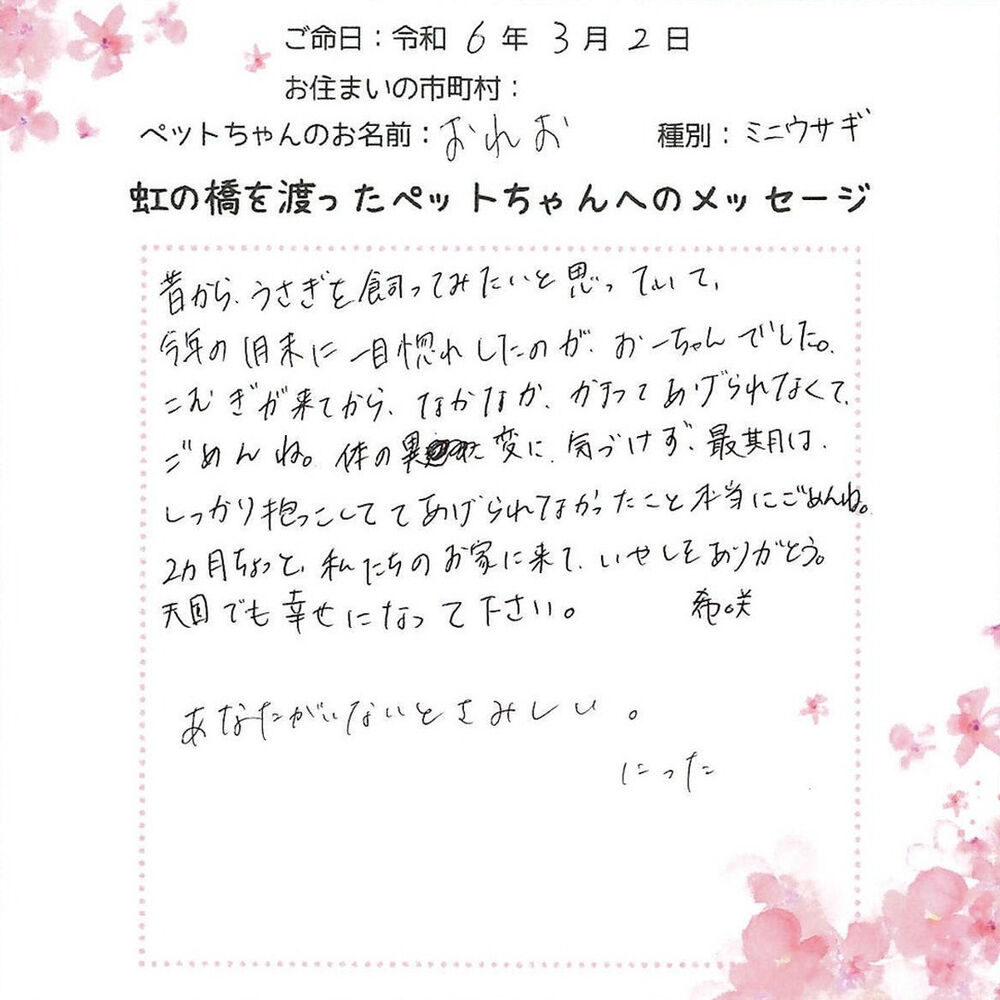 ご命日：令和 6 年 3 月 2 日
お住まいの市町村：
ペットちゃんのお名前：おれお 種別：ミニウサギ
虹の橋を渡ったペットちゃんへのメッセージ
昔から、うさぎを飼ってみたいと思っていて、
今年の1月末に一目惚れしたのが、おーちゃんでした。
こむぎが来てから、なかなか、かまってあげられなくて、
ごめんね。体の異変に、気づけず、最期は、
しっかり抱っこしててあげられなかったこと本当にごめんね。
2カ月ちょっと、私たちのお家に来て、いやしをありがとう。
天国でも幸せになって下さい。 希咲
あなたがいないとさみしい。
にった